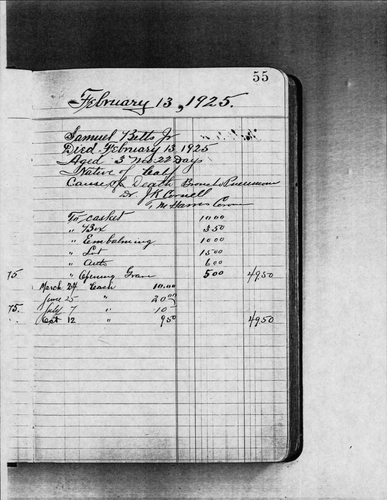 55
February 13, 1925.
Samuel Betts Jr
Died February 13, 1925
Aged 3 Mos 22 Days
Native of Calif
Cause of Death Broncho Pneumonia
Dr. J K Cornell
To casket 10.00
" Box 3.50
" Embalming 10.00
" Lot 15.00
" Auto 6.00
75 " Opening Grave 5.00 49.50
March 24 Cash 10.00
June 25 " 20.00
75. July 7 " 10
Oct 12 " 9.50 49.50